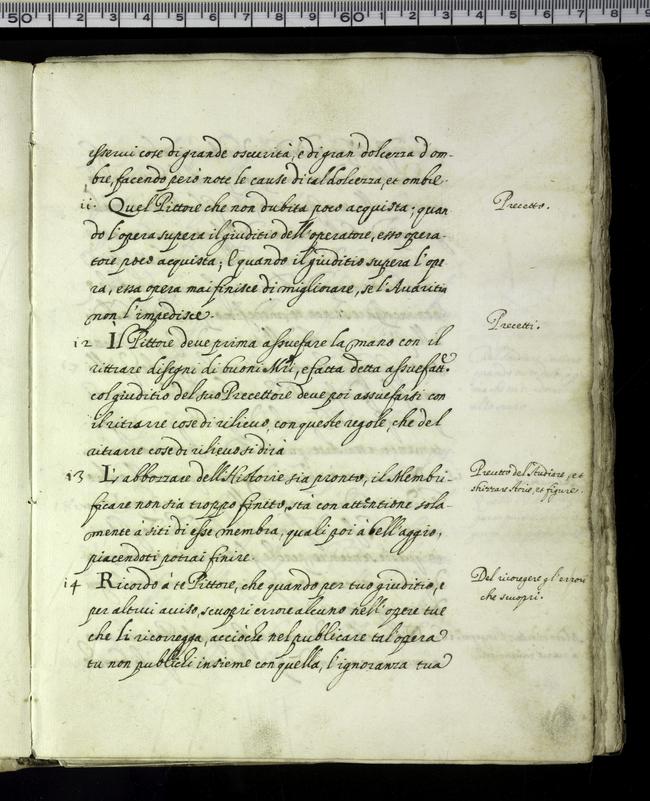 esservi cose di grande oscurità, e di gran' dolcezza d'om-
bre, facendo però note le cause di tal dolcezza, et ombre.
11. Quel Pittore che non dubita poco acquista; quan
Precetto.
do l'opera supera il giuditio dell'operatore, esso opera-
tore poco acquista; E quando il giuditio supera l'ope
ra, essa opera mai finisce di migliorare, se l'Avaritia
non l'impedisce.
Precetti.
12 Il Pittore deve prima assuefare la mano con il
rittrare disegni di buoni Mri, e fatta detta assuefatt.e
col giuditio del suo Precettore deve poi assuefarsi con
il ritrarre cose di rilievo, con queste regole, che del
ritrarre cose di rilievo si dirà
13 L'abbozzare dell'Historie sia pronto, il Membri-
Precetto del studiare, et
ficare non sia troppo finito, stà con attentione sola-
schizzare storie, et figure.
mente à siti di esse membra, quali poi à bell'aggio,
piacendoti potrai finire
14 Ricordo à te Pittore, che quando per tuo giuditio, e
Del ricoregere gl'errori
che scuopri.
per altrui aviso, scuopri errore alcuno nell'opere tue
che li ricorregga, acciòche nel publicare tal'opera
tu non publichi insieme con quella, l'ignoranza tua